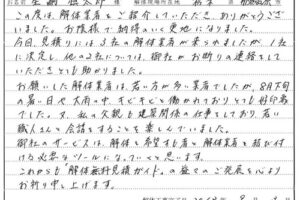 この度は、解体業者をご紹介していただき、ありがとうござい
ました。お陰様で納得のいく更地になりました。
今日、見積りには3社の解体業者が来られましたが、1社
に決定し、他の2社については、御社がお断りの連絡をして
いただきとても助かりました。
お願いした解体業者は、若い方が多い業者でしたが、8月下旬
の暑い日や大雨の中、キビキビと働かれておりとても好印象
でした。又、私の父親も建築関係の仕事をしており、若い
職人さんと会話をすることを楽しんでいました。
御社のサービスは、解体を希望する者と解体業者を結び付け
る必要なツールになっていくと思います。
これからも「解体無料見積ガイド」の益々のご発展を心より
お祈り申し上げます。